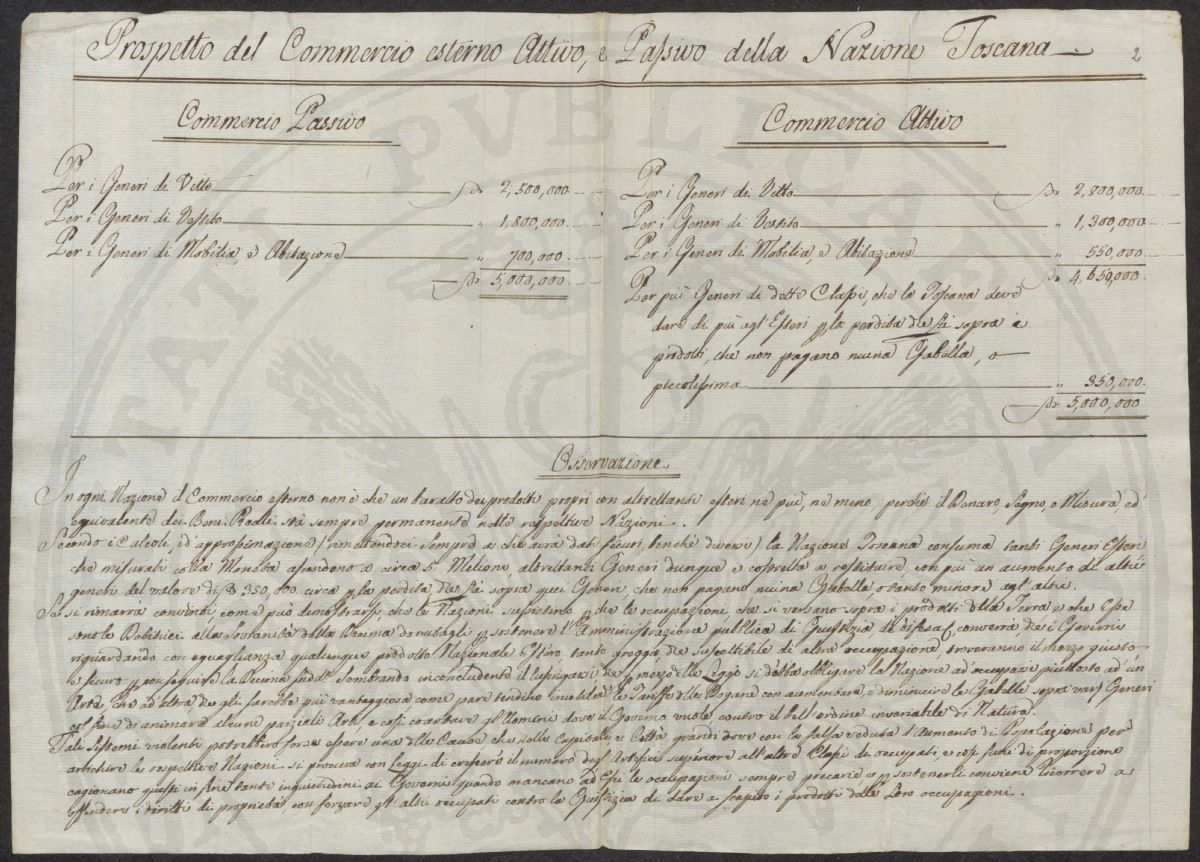 Prospetto del Commercio esterno Attivo, e Passivo della Nazione Toscana
2
Commercio Passivo
Per i Generi di Vitto 2,500,000
Per i Generi di Vestito " 1,800,000
Per i Generi di Mobilia, e Abitazione " 700,000
5,000,000
Commercio Attivo
Per i Generi di Vitto 2,800,000
Per i Generi di Vestito " 1,300,000
Per i Generi di Mobilia, e Abitazione " 550,000
4,650,000
Per più Generi di dette Classi, che la Toscana deve
dare di più agl'Esteri p la perdita che fà sopra i
prodotti, che non pagano niuna Gabella, o
piccolissima " 350,000
5,000,000
Osservazione
In ogni Nazione il Commercio esterno non è che un baratto dei prodotti propri con altrettanti esteri nè più, ne meno, perchè il Denaro Segno, o Misura ed
equivalente dei Beni Reali stà sempre permanente nelle respettive Nazioni.
Secondo i Calcoli, ed'approssimazione (rimettendoci sempre a chi avrà dati sicuri, benchè diversi) la Nazione Toscana consuma tanti Generi Esteri
che misurati colla Moneta ascendono a circa 5. Milioni, altrettanti Generi dunque è costretta a restituire con più un aumento di altri
generi del valore di 350,000. circa p la perdita che fà sopra quei Generi che non pagano niuna Gabella o tanto minore agl'altri.
Se si rimarrà convinti, come può dimostrarsi, che le Nazioni sussistino p che le occupazioni, che si versano sopra i prodotti della Terra e che Esse
sono le Debitrici alla Sovranità della Decima dovutagli p sostenere l'Amministrazione pubblica di Giustizia, e difesa, converrà, che i Governi
riguardando con eguaglianza qualunque prodotto Nazionale Estero, tanto greggio, che suscettibile di altre occupazioni troveranno il mezzo giusto
e sicuro p conseguire la Decima sudd. Sembrando inconcludenti il lusingarsi che p mezzo delle Leggi si debba obbligare la Nazione ad occuparsi piuttosto ad un
Arte, che ad'altra che gli sarebbe più vantaggiosa come pare tendino le Tariffe delle Dogane con aumentare, o diminuire le Gabelle sopra varj Generi
col fine di animare alcune parziali Arti, e così coartare gl'Uomini dove il Governo vuole contro il bell'ordine invariabile di Natura.
Tali Sistemi violenti potrebbero forse essere una delle Cause che nelle capitali, e Città grandi dove con la falsa veduta l'aumento di Popolazione per
arrichire le respettive Nazioni si procura con Leggi di crescere il numero degl'Artefici superiore all'altre Classi di occupati, e così fuori di proporzione
cagionano questi in fine tante inquietudini ai Governi quando mancano ad Essi le occupazioni sempre precarie e p sostenerli conviene ricorrere a
offendere i diritti di proprietà con forzare gl'altri occupati contro la Giustizia di dare a scapito i prodotti delle Loro occupazioni.